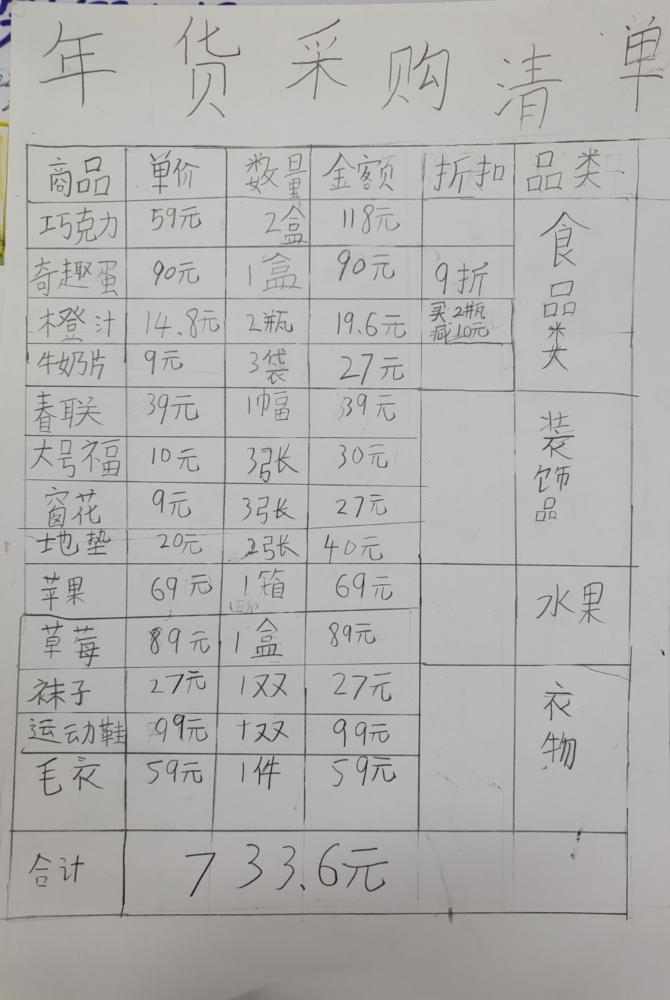 年货采购清单
商品 单价 数量 金额 折扣 品类
巧克力 59元 2盒 118元 食品类
奇趣蛋 90元 1盒 90元 9折
橙汁 14.8元 2瓶 19.6元 买2瓶减10元
牛奶片 9元 3袋 27元
春联 39元 1幅 39元 装饰品
大号福 10元 3张 30元
窗花 9元 3张 27元
地垫 20元 2张 40元
苹果 69元 1箱 69元 水果
草莓 89元 1盒 89元
袜子 27元 1双 27元 衣物
运动鞋 99元 1双 99元
毛衣 59元 1件 59元
合计 733.6元